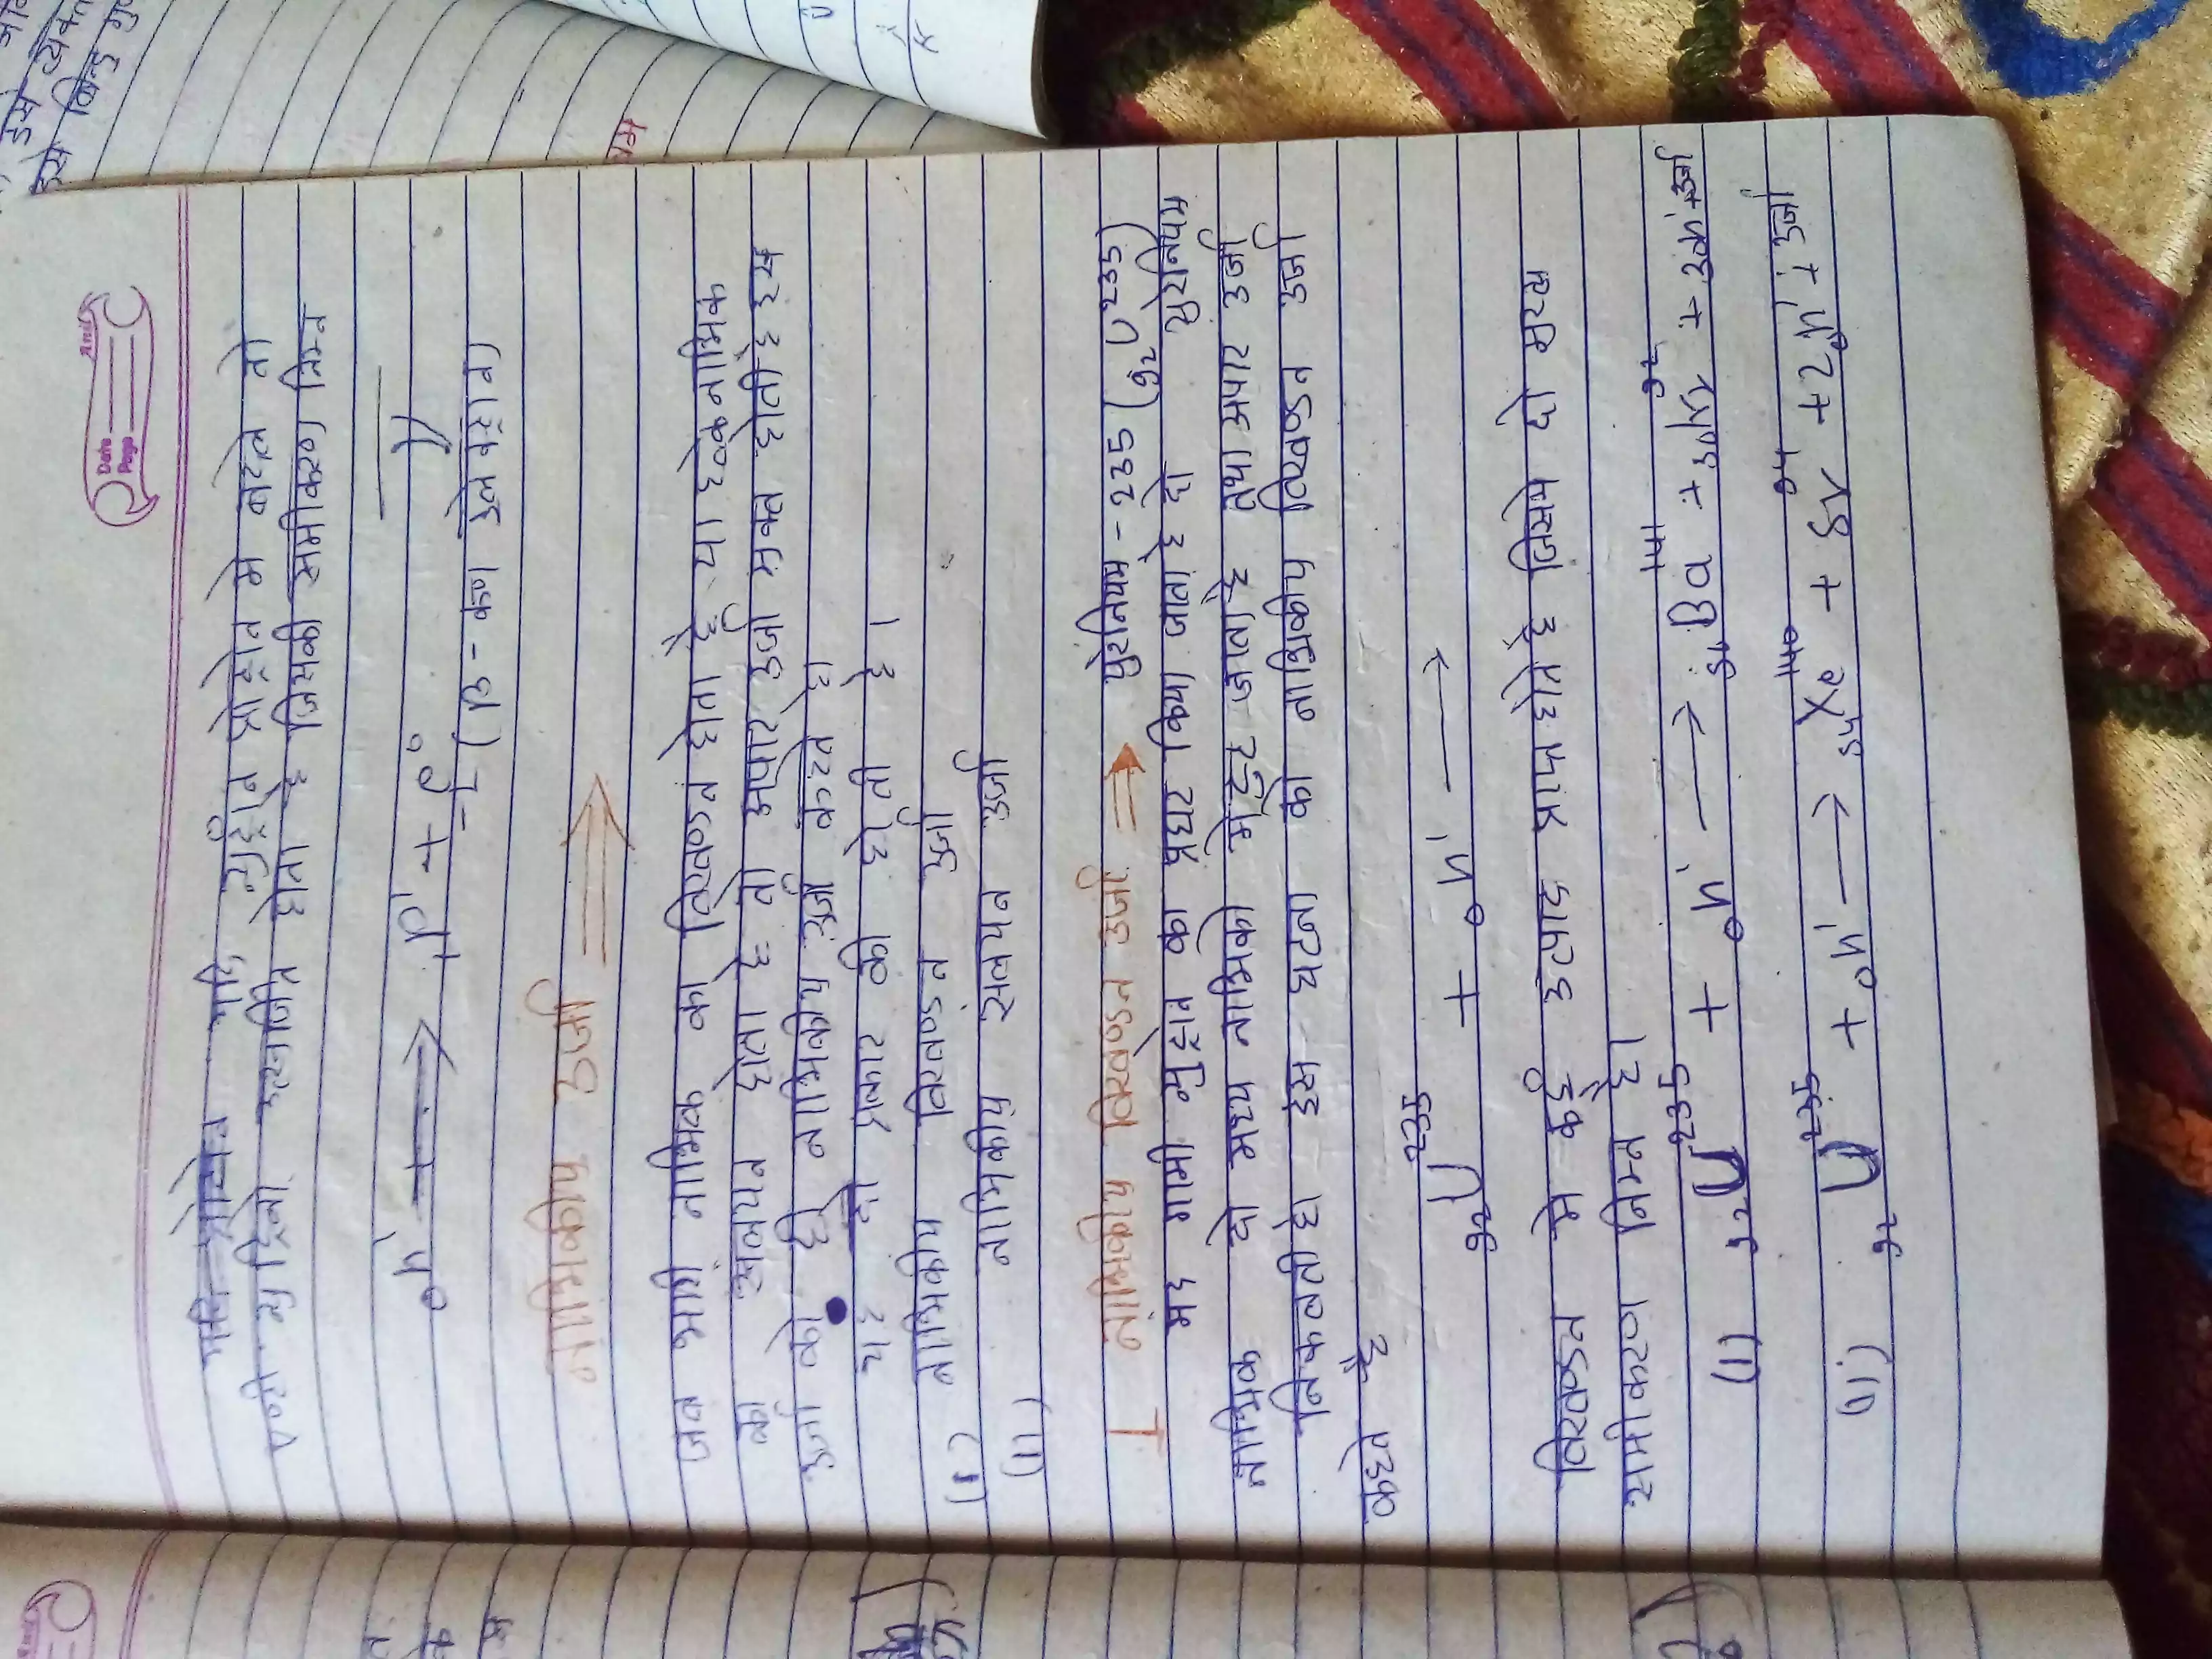 Date
Page
यदि न्युट्रान प्रोट्रान मे बदले तो
एण्टी न्युट्रिनो उत्सर्जित होता है जिसकी समीकरण निम्न
₀n¹ → ₁p¹ + ₋₁e⁰
(β - कण इलेक्ट्रान)
नाभिकीय उर्जा ⇒
जब भारी नाभिक का विखण्डन होता है या हल्के नाभिक
का संलयन होता है तो अपार उर्जा मुक्त होती है इस
उर्जा को ही नाभिकीय उर्जा कहते है।
यह दो प्रकार की होती है।
(1) नाभिकीय विखण्डन उर्जा
(11) नाभिकीय संलयन उर्जा
1 नाभिकीय विखण्डन उर्जा ⇒ युरेनियम - 235 (₉₂U²³⁵)
मद गामी न्युट्रान का प्रहार किया जाता है तो युरेनियम
नाभिक दो मध्य नाभिको मे टुट जाता है तथा अपार उर्जा
निकलती है। इस घटना को नाभिकीय विखण्डन उर्जा
कहते है
₉₂U²³⁵ + ₀n¹ →
विखण्डन मे कई उत्पाद प्राप्त होते है जिसमे दो मुख्य
समीकरण निम्न है।
(1) ₉₂U²³⁵ + ₀n¹ → ₅₆Ba¹⁴¹ + ₃₆Kr⁹² + 3₀n¹ + उर्जा
(ii) ₉₂U²³⁵ + ₀n¹ → ₅₄Xe¹⁴⁰ + Sr⁹⁴ + 2₀n¹ + उर्जा